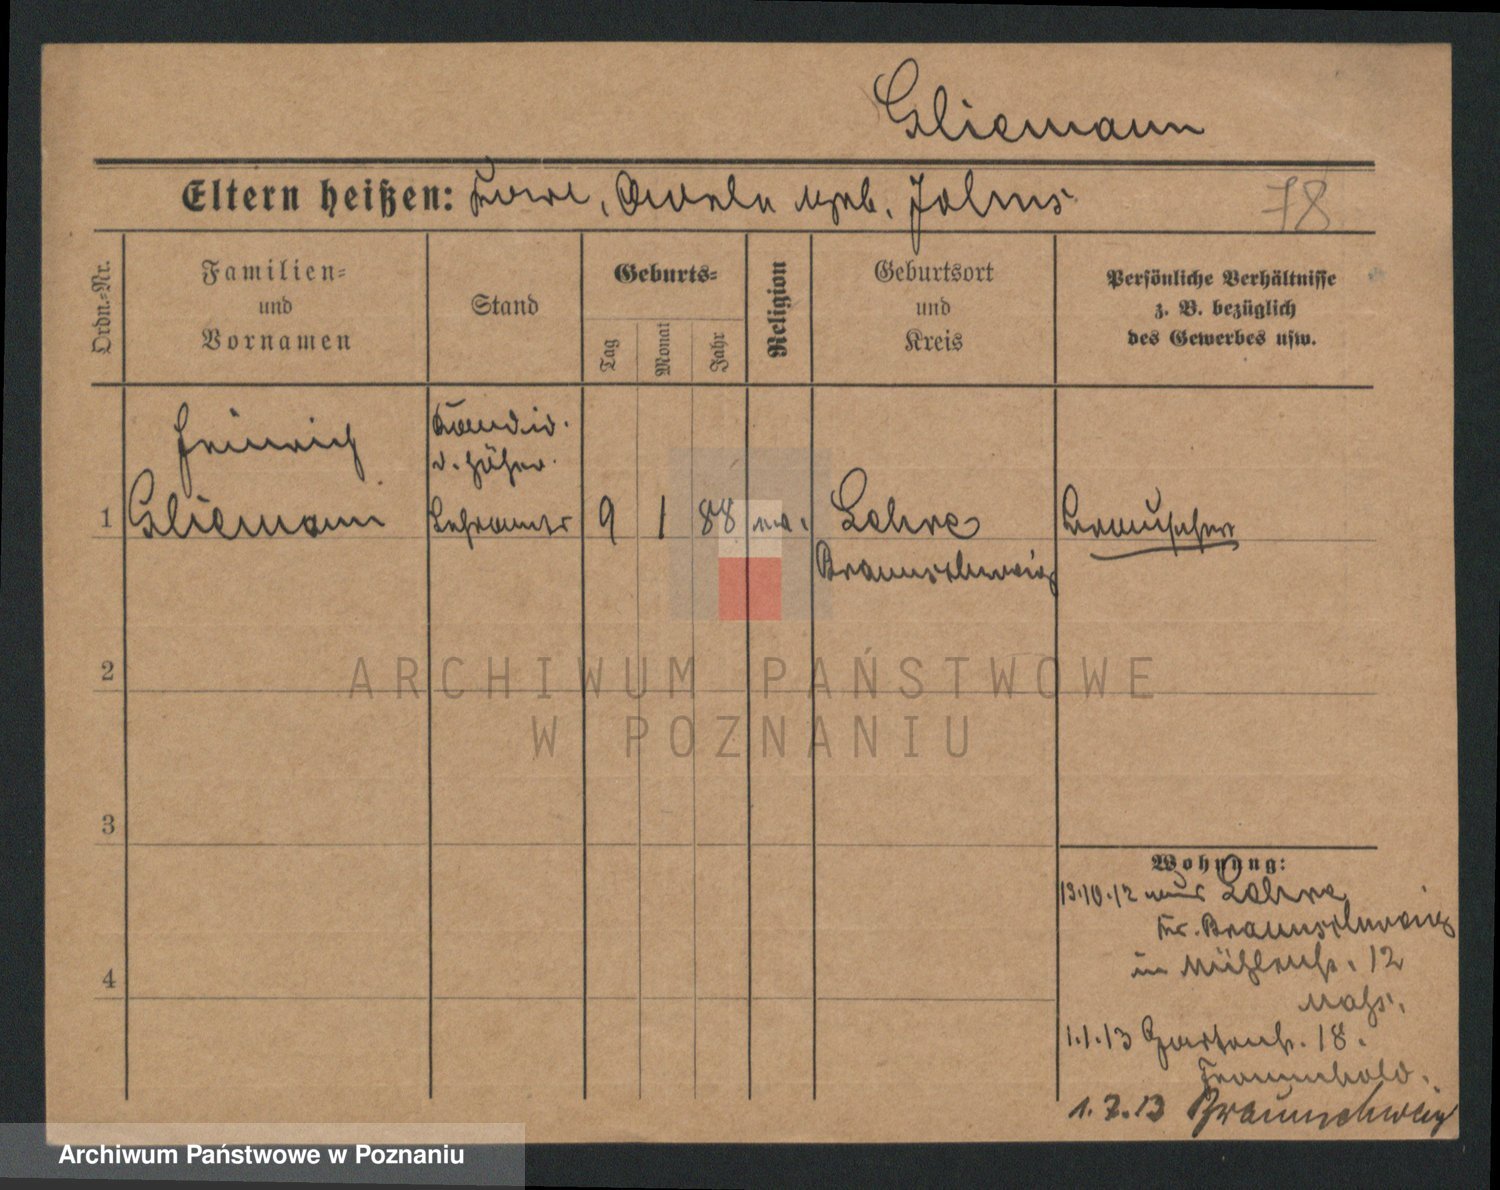 Gliemann
Eltern heißen: geb. Johns
78
Ordn.-Nr.
Familien-
und
Vornamen
Stand
Geburts-
Tag
Monat
Jahr
Religion
Geburtsort
und
Kreis
Persönliche Verhältnisse
z. B. bezüglich
des Gewerbes usw.
Heinrich
Gliemann
Kandid.
d. höher.
Lehramts
1
9
1
88
Lehre
Braunschweig
2
3
4
Wohnung:
13.10.12 aus Lehre
Kr. Braunschweig
in Mühlenstr. 12
1.1.13 Gartenstr. 18.
1.7.13 Braunschweig
ARCHIWUM PAŃSTWOWE
W POZNANIU
Archiwum Państwowe w Poznaniu